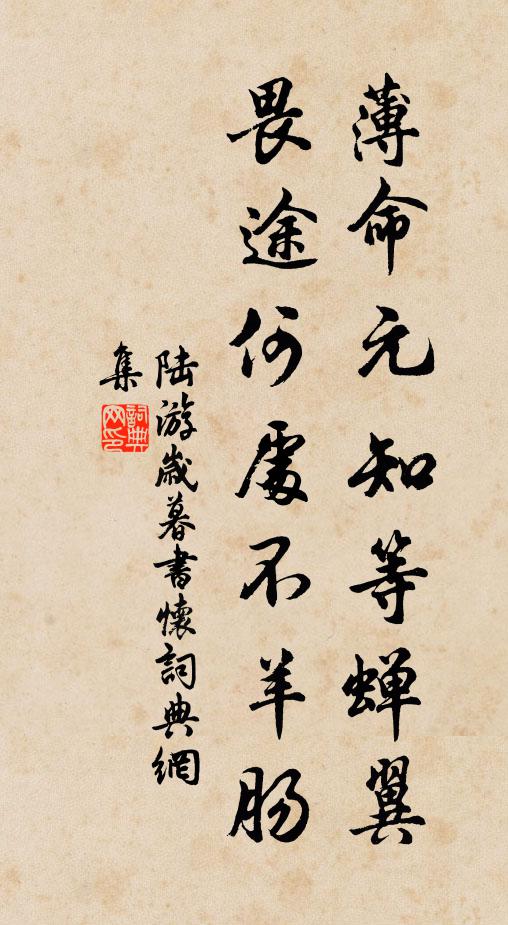 薄命元知等蝉翼
畏途何處不羊肠
陆游歲暮書懷詞典網
集
詞典网印